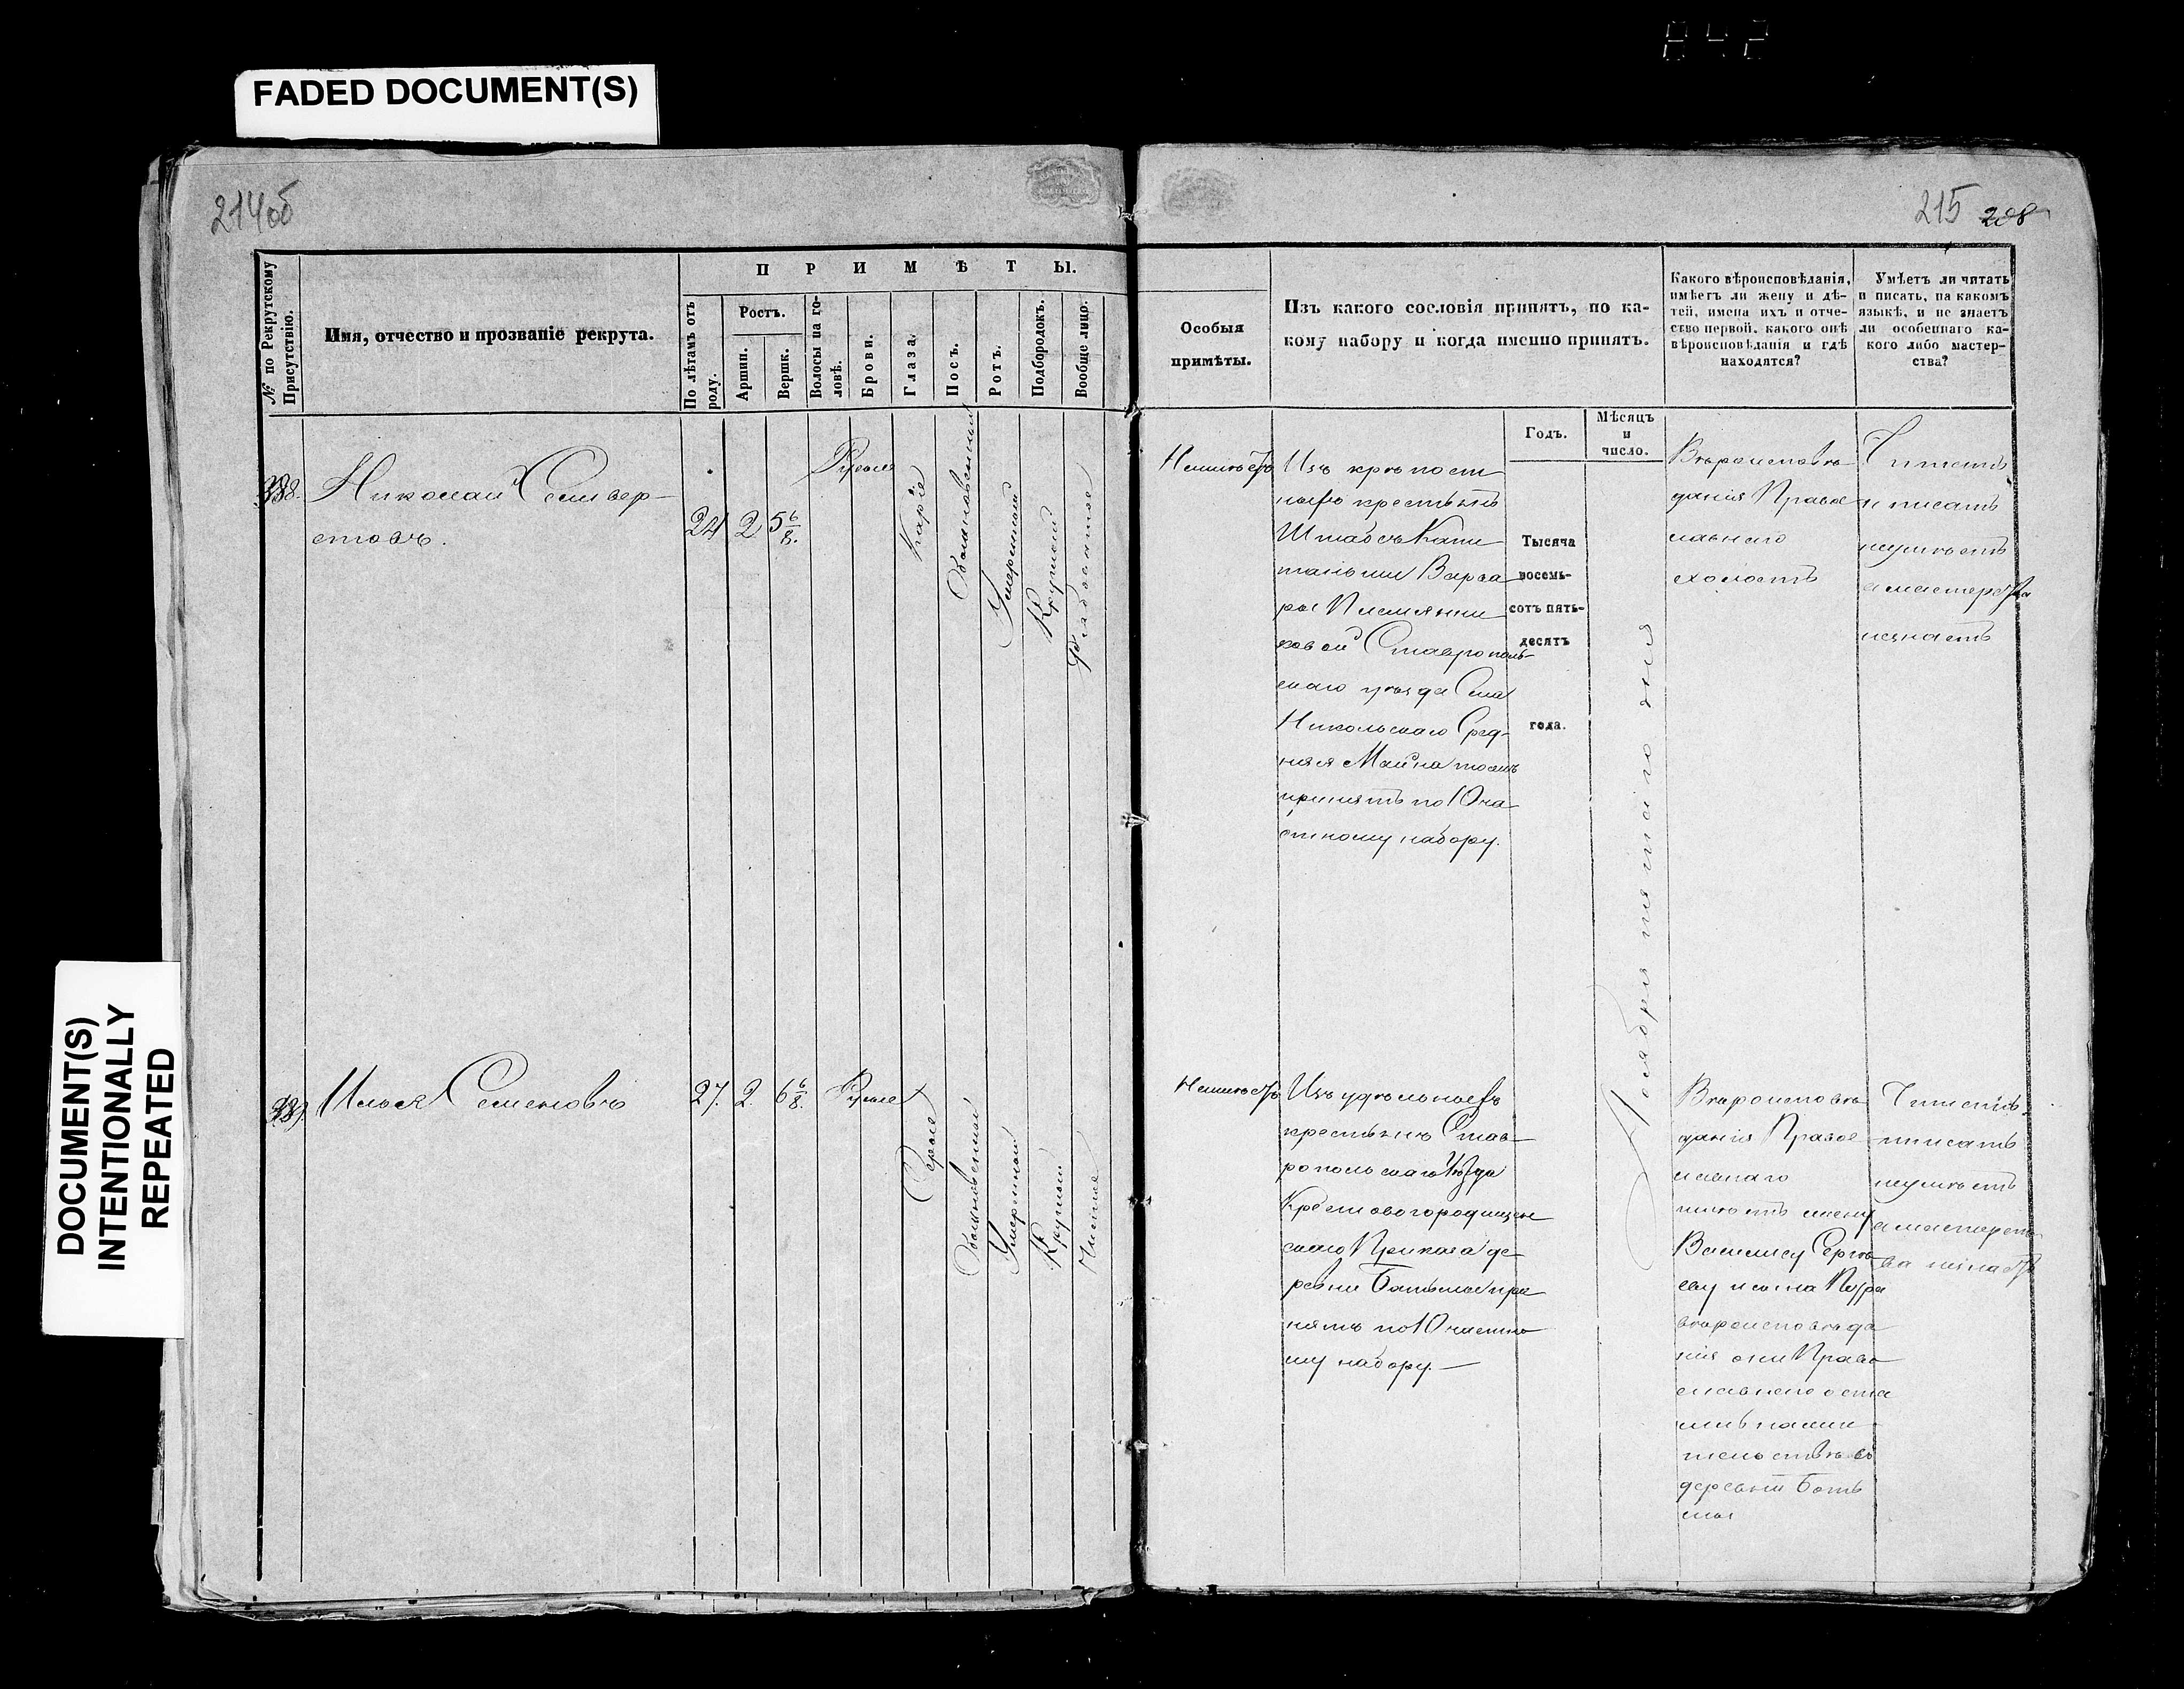 842
FADED DOCUMENT(S)
DOCUMENT(S)
INTENTIONALLY
REPEATED
214об
215 208
№ по Рекрутскому
Присутствію.
Имя, отчество и прозваніе рекрута.
П Р И М Ѣ Т Ы.
По лѣтамъ отъ
роду.
Ростъ.
Аршин.
Вершк.
Волосы на го-
ловѣ.
Брови.
Глаза.
Носъ.
Ротъ.
Подбородокъ.
Вообще лицо.
Особыя
примѣты.
Изъ какого сословія принятъ, по ка-
кому набору и когда именно принятъ.
Какого вѣроисповѣданія,
имѣетъ ли жену и дѣ-
тей, имена ихъ и отче-
ство первой, какого онѣ
вѣроисповѣданія и гдѣ
находятся?
Умѣетъ ли читать
и писать, на какомъ
языкѣ, и не знаетъ
ли особеннаго ка-
кого либо мастер-
ства?
Годъ.
Мѣсяцъ
и
число.
338.
Николай Селивер-
стовъ.
24
2
5 6/8.
Русые
Каріе
Обыкновенный
Умеренный
Круглый
Неимѣетъ
Изъ крѣпост
ныхъ крестьянъ
Штабсъ Капи
танши Варва
ры Племянни
ковой Ставрополь-
скаго уѣзда Села
Никольскаго Сред-
няя Майна тожъ
принятъ по 10 ча
стному набору.
Тысяча
восемь-
сотъ пять-
десятъ
года.
Ноября пятаго дня
Вѣроисповѣ
данія Право
славнаго
холостъ
Читать
и писать
неумѣетъ
а мастерства
незнаетъ
339.
Илья Семеновъ
27.
2.
6 6/8.
Русые
Серые
Обыкновенный
Умеренный
Круглый
Чистое
Неимѣетъ
Изъ удѣльныхъ
крестьянъ Став-
ропольскаго Уѣзда
Крестовогородищен
скаго Приказа де-
ревни Ботьмы при
нятъ по 10 частно
му набору.—
Вѣроисповѣ
данія Право
славнаго
имѣетъ жену
Василису Сергѣ
еву и сына Петра
вѣроисповѣда
нія они Право
славнаго оста
лись на жи
тельствѣ въ
деревнѣ Боть
мы
Читать
писать
неумѣетъ
а мастерст
ва незнаетъ